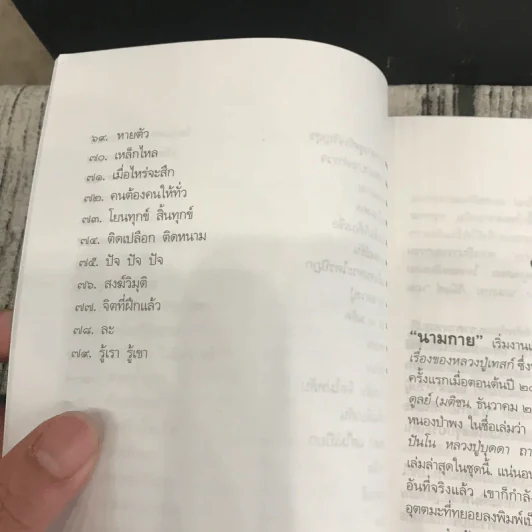 ๖๙. หายตัว
๗๐. เหล็กไหล
๗๑. เมื่อไหร่จะสึก
๗๒. คนต้องคนให้ทั่ว
๗๓. โยนทุกข์ สิ้นทุกข์
๗๔. ติดเปลือก ติดหนาม
๗๕. ปัจ ปัจ ปัจ
๗๖. สงฆ์วิมุติ
๗๗. จิตที่ฝึกแล้ว
๗๘. ละ
๗๙. รู้เรา รู้เขา
“นามกาย” เริ่มงาน
เรื่องของหลวงปู่เทสก์ ซึ่ง
ครั้งแรกเมื่อตอนต้นปี
ดูลย์ (มติชน, ธันวาคม ๒
หนองป่าพง ในชื่อเล่มว่า
ปันโน หลวงปู่บุดดา ถา
เล่มล่าสุดในชุดนี้. แน่นอน
อันที่จริงแล้ว เขาก็กำลัง
อุตตมะที่ทยอยลงพิมพ์